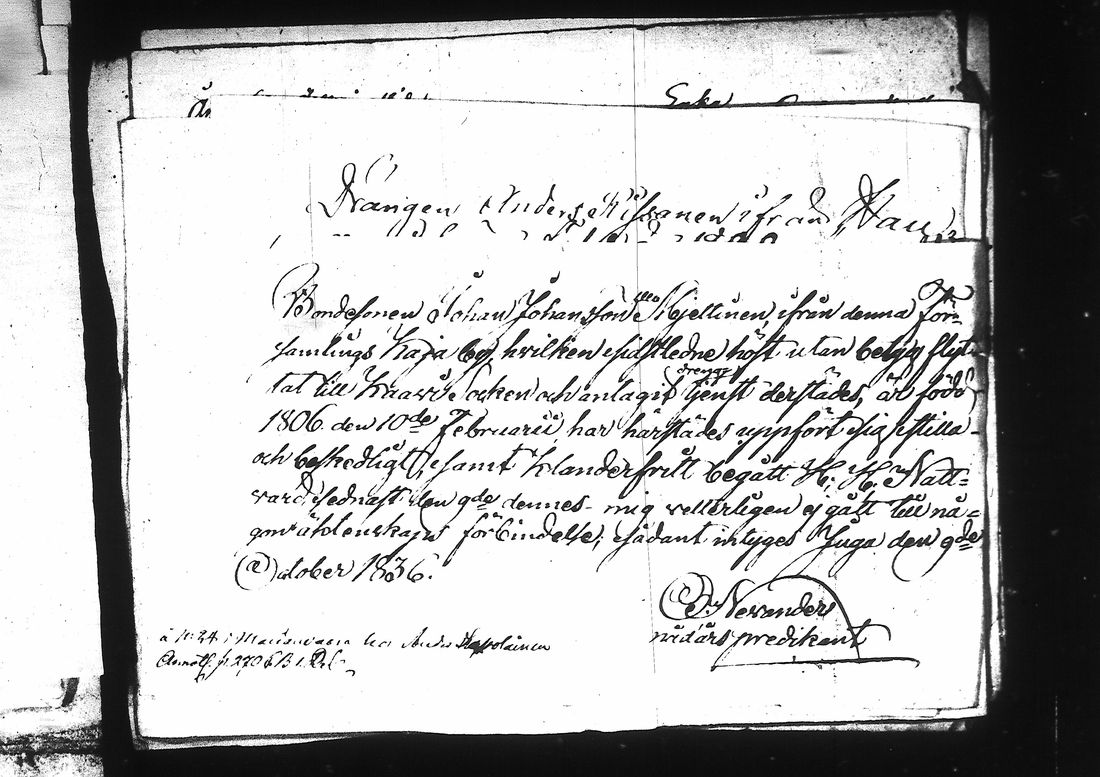 Drängen Anders Kissanen ifrån
Bondesonen Johan Johansson ifrån denna För-
samlings Kaja by, hvilken sidstledne höst utan betyg flyt-
tat till Kaavi Socken och antagit drengs tjenst derstädes, är född
1806 den 10de Februarii, har härstädes uppfört sig stilla
och beskedligt, samt klanderfritt begått H. H. Natt=
vard sednast den 9de dennes - mig vetterligen ej gått till nå=
gon äktenskaps förbindelse; sådant intyges Juga den 9de
October 1836.
Nexander
nådårs predikent
å No 24 i hos Anders
Annoth. p. 270